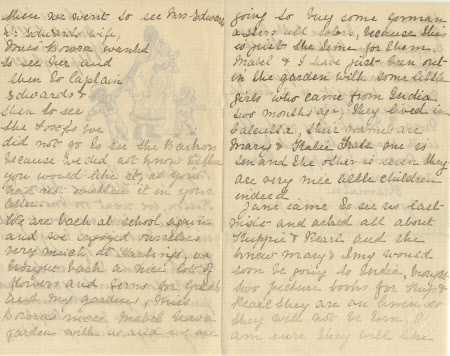 then we went to see Mrs Edwards
Dr Edwards wife,
Miss wanted
to see her and
then to Captain
Edwards &
then to see
the we
did not go to see the Barkers
because we did not know whether
you would like it, as you
had not mentioned it in your
letter.
We are back at school again
and we enjoyed ourselves
very much at Hastings, we
brought back a nice lot of
flowers and ferns for
and my garden, Miss
niece Mabel has a
garden with us and we are
going to buy some German
asters all colors, because this
is just the time for them.
Mabel & I have just been out
in the garden with some little
girls who came from India
two months ago, they lived in
Calcutta, their names are
Mary & Katie one is
ten and the other is seven they
are very nice little children
indeed.
Jane came to see us last
night and asked all about
& Pearl and she
knew Mary & Amy would
soon be going to India, brought
two picture books for &
Pearl they are on linen so
they will not be torn, I
am sure they will like